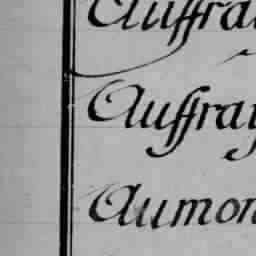 Auffra
Auffray
Aumon